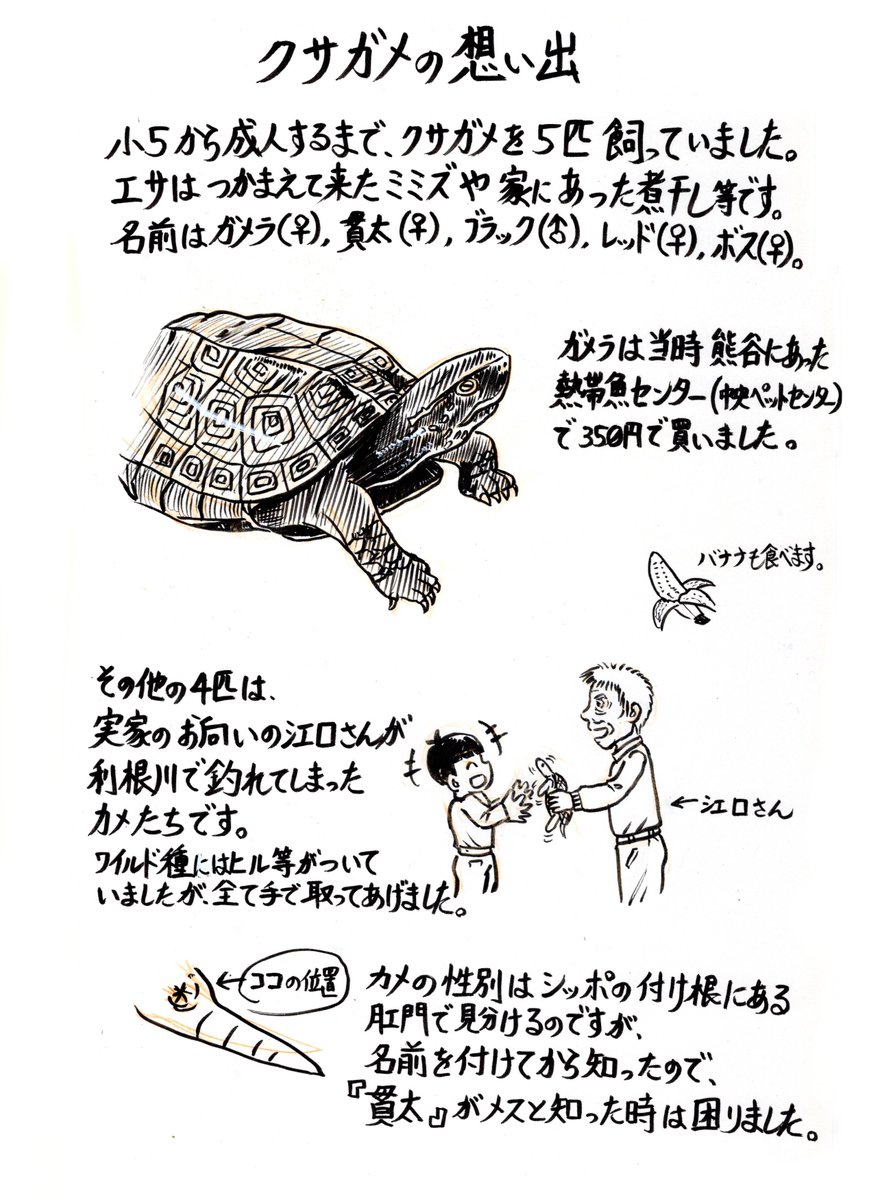 クサガメの想い出
小5から成人するまで、クサガメを5匹飼っていました。
エサはつかまえて来たミミズや家にあった煮干し等です。
名前はガメラ(♀),貫太(♀),ブラック(♂),レッド(♀),ボス(♀)。
ガメラは当時熊谷にあった
熱帯魚センター(中央ペットセンター)
で350円で買いました。
バナナも食べます。
その他の4匹は、
実家のお向いの江口さんが
利根川で釣れてしまった
カメたちです。
ワイルド種にはヒル等がついて
いましたが、全て手で取ってあげました。
←江口さん
←ココの位置
カメの性別はシッポの付け根にある
肛門で見分けるのですが、
名前を付けてから知ったので、
『貫太』がメスと知った時は困りました。